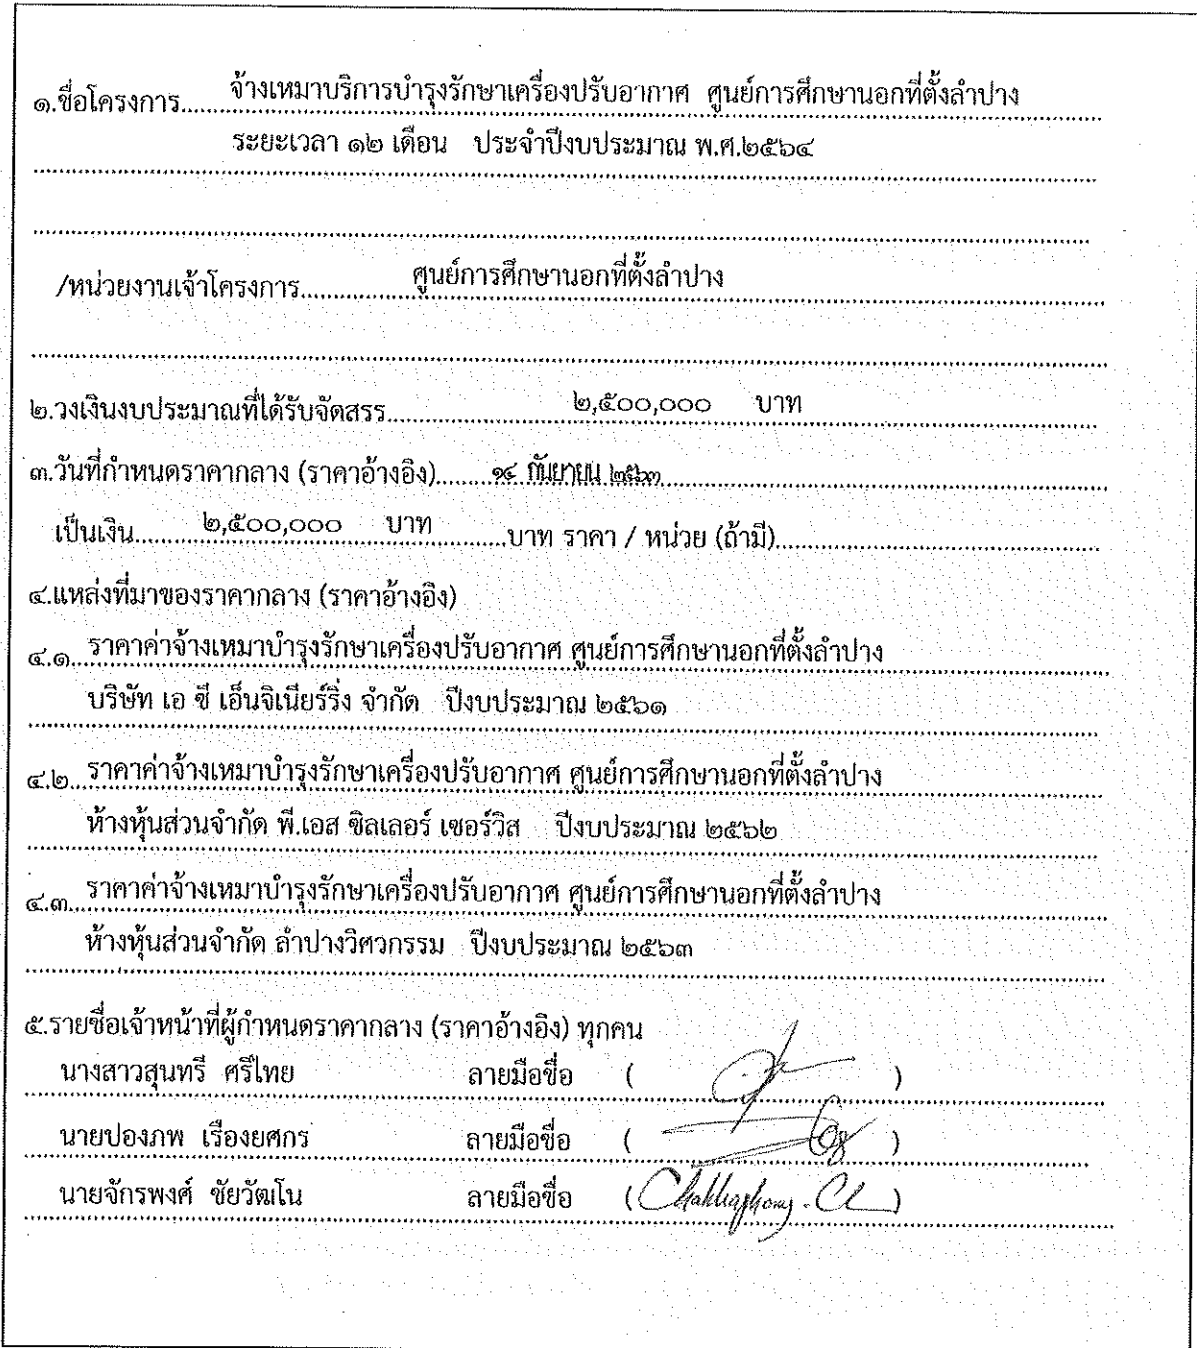 ๑.ชื่อโครงการ......จ้างเหมาบริการบำรุงรักษาเครื่องปรับอากาศ ศูนย์การศึกษานอกที่ตั้งลำปาง
ระยะเวลา ๑๒ เดือน ประจำปีงบประมาณ พ.ศ.๒๕๖๔
/หน่วยงานเจ้าโครงการ......ศูนย์การศึกษานอกที่ตั้งลำปาง
๒.วงเงินงบประมาณที่ได้รับจัดสรร......๒,๕๐๐,๐๐๐ บาท
๓.วันที่กำหนดราคากลาง (ราคาอ้างอิง)......๑๔ กันยายน ๒๕๖๓
เป็นเงิน......๒,๕๐๐,๐๐๐ บาท......บาท ราคา / หน่วย (ถ้ามี)......
๔.แหล่งที่มาของราคากลาง (ราคาอ้างอิง)
๔.๑...ราคาค่าจ้างเหมาบำรุงรักษาเครื่องปรับอากาศ ศูนย์การศึกษานอกที่ตั้งลำปาง
บริษัท เอ ซี เอ็นจิเนียร์ริ่ง จำกัด ปีงบประมาณ ๒๕๖๑
๔.๒...ราคาค่าจ้างเหมาบำรุงรักษาเครื่องปรับอากาศ ศูนย์การศึกษานอกที่ตั้งลำปาง
ห้างหุ้นส่วนจำกัด พี.เอส ชิลเลอร์ เซอร์วิส ปีงบประมาณ ๒๕๖๒
๔.๓...ราคาค่าจ้างเหมาบำรุงรักษาเครื่องปรับอากาศ ศูนย์การศึกษานอกที่ตั้งลำปาง
ห้างหุ้นส่วนจำกัด ลำปางวิศวกรรม ปีงบประมาณ ๒๕๖๓
๕.รายชื่อเจ้าหน้าที่ผู้กำหนดราคากลาง (ราคาอ้างอิง) ทุกคน
นางสาวสุนทรี ศรีไทย ลายมือชื่อ ( )
นายปองภพ เรืองยศกร ลายมือชื่อ ( )
นายจักรพงศ์ ชัยวัฒโน ลายมือชื่อ ( )